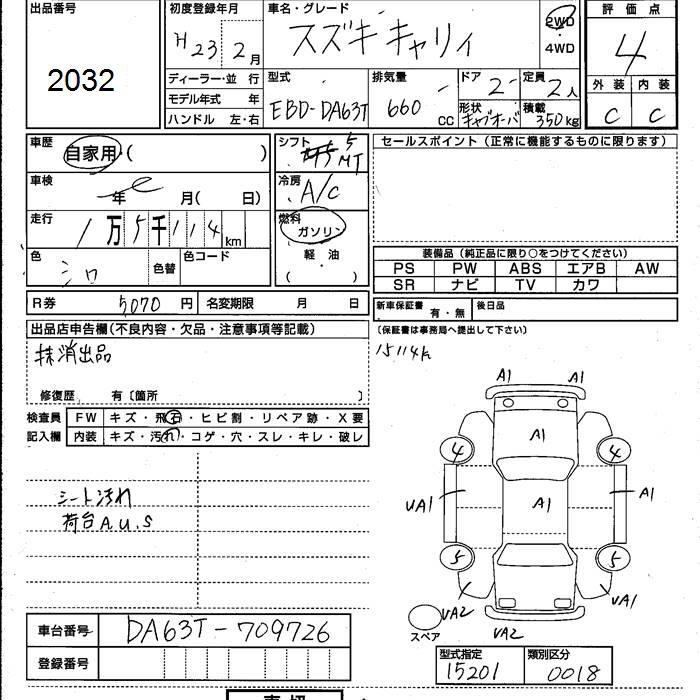 出品番号
2032
初度登録年月
H23 2月
ディーラー・並 行
モデル年式 年
ハンドル 左・右
車名・グレード
スズキ キャリイ
2WD
・
4WD
型式
EBD-DA63T
排気量
660 cc
ドア
2
定員
2人
形状
キャブオーバ
積載
350kg
評価点
4
外装 内装
C C
車歴
自家用・( )
車検
年 月( 日)
走行
1万5千114km
色
シロ
色替
色コード
シフト
5
MT
冷房
A/C
燃料
ガソリン
軽・油
( )
セールスポイント(正常に機能するものに限ります)
装備品(純正品に限り○をつけてください)
PS PW ABS エアB AW
SR ナビ TV カワ
R券 5070円 名変期限 月 日
新車保証書 有・無 後日品
(保証書は事務局へ提出して下さい)
出品店申告欄(不良内容・欠品・注意事項等記載)
抹消出品
15114k
修復歴 有〔箇所 〕
検査員
記入欄
FW キズ・飛石・ヒビ割・リペア跡・X要
内装 キズ・汚れ・コゲ・穴・スレ・キレ・破レ
シート汚れ
荷台A.U.S
A1 A1
A1
4 4
UA1 A1 A1
5 5
UA2 UA1
スペア UA2
車台番号 DA63T-709726
登録番号
型式指定 類別区分
15201 0018